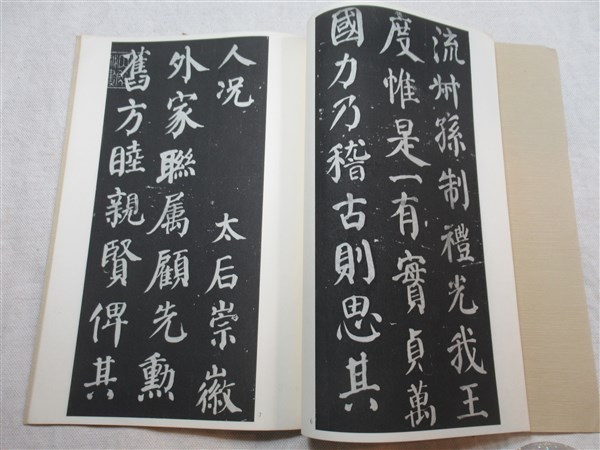 流叔孫制禮光我王
度惟是一有實貞萬
國力乃稽古則思其
人況 太后崇徽
外家聯属顧先勳
舊方睦親賢俾其